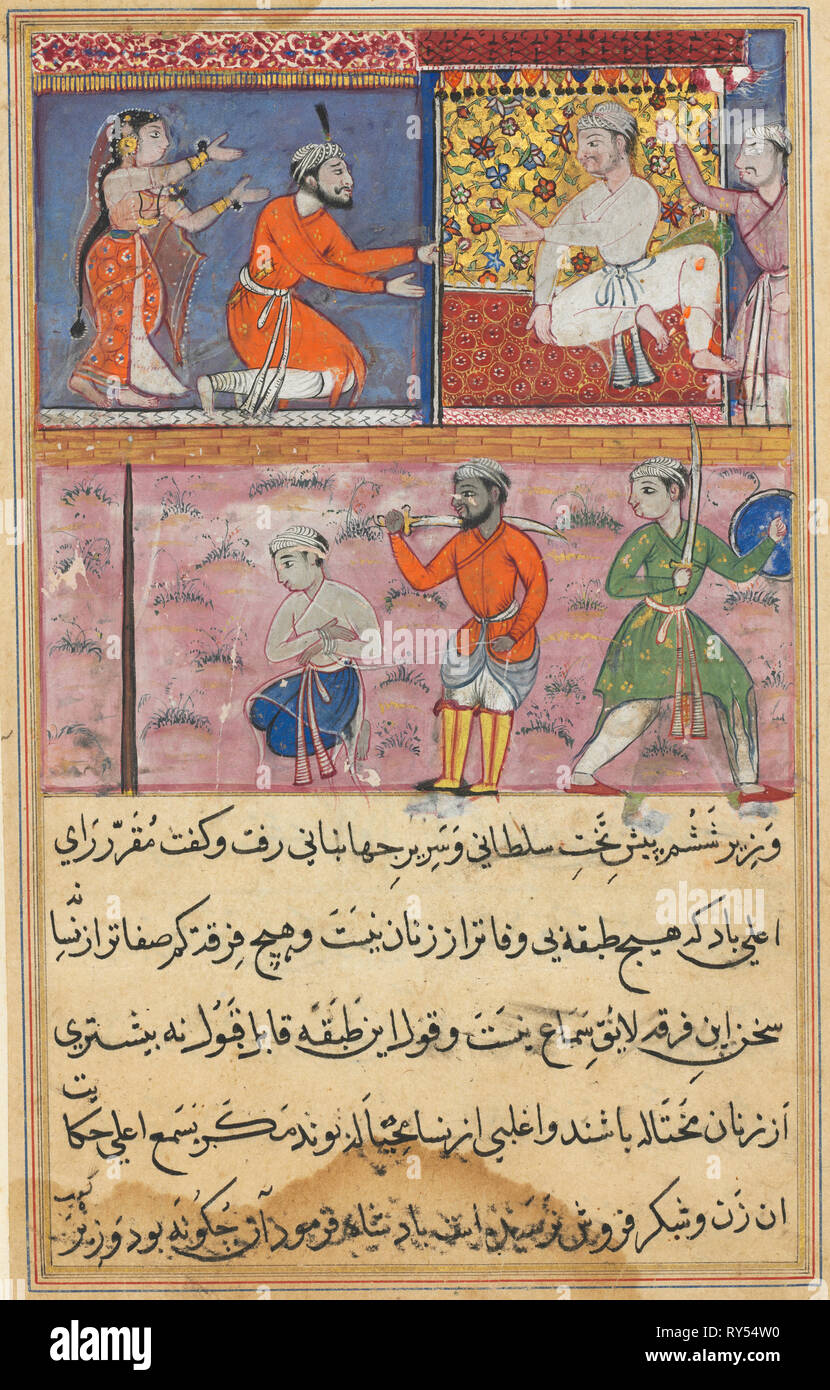 وَزِیرِ شَشُم پیشِ تَختِ سلطانی وَسَریرِ جهانبانی رفت وکفت مُقَرّر رَای
اعلی باد که هیچ طبقه بی وفاتر از زنان نیسَت وهیچ فِرقه کم صفاتر از نسا نه
سخن این فرقه لایقِ سَماع نیسَت وقول این طَبقَه قابل قَبُول نه بیشتری
اَز زنان مُحتاله باشند واغلبی از نسا مُحیاله بوند مَکَر بسَمع اعلی حکایت
ان زَن وشکر فروش نرسَیده است بادشاه فرمود آن چکونَه بود وَزِیر
alamy
Image ID: RY54W0
www.alamy.com